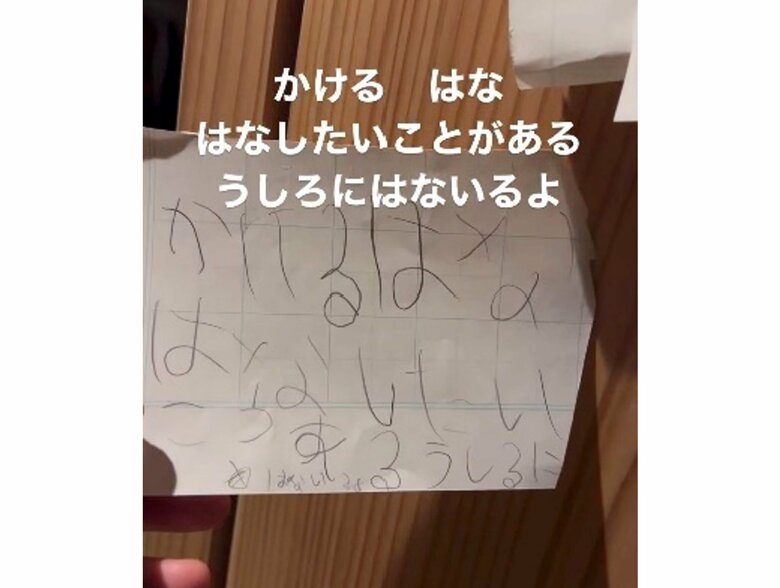 かける　はな
はなしたいことがある
うしろにはないるよ
かけるはな
はなしたい
あるうしるに
はないるよ